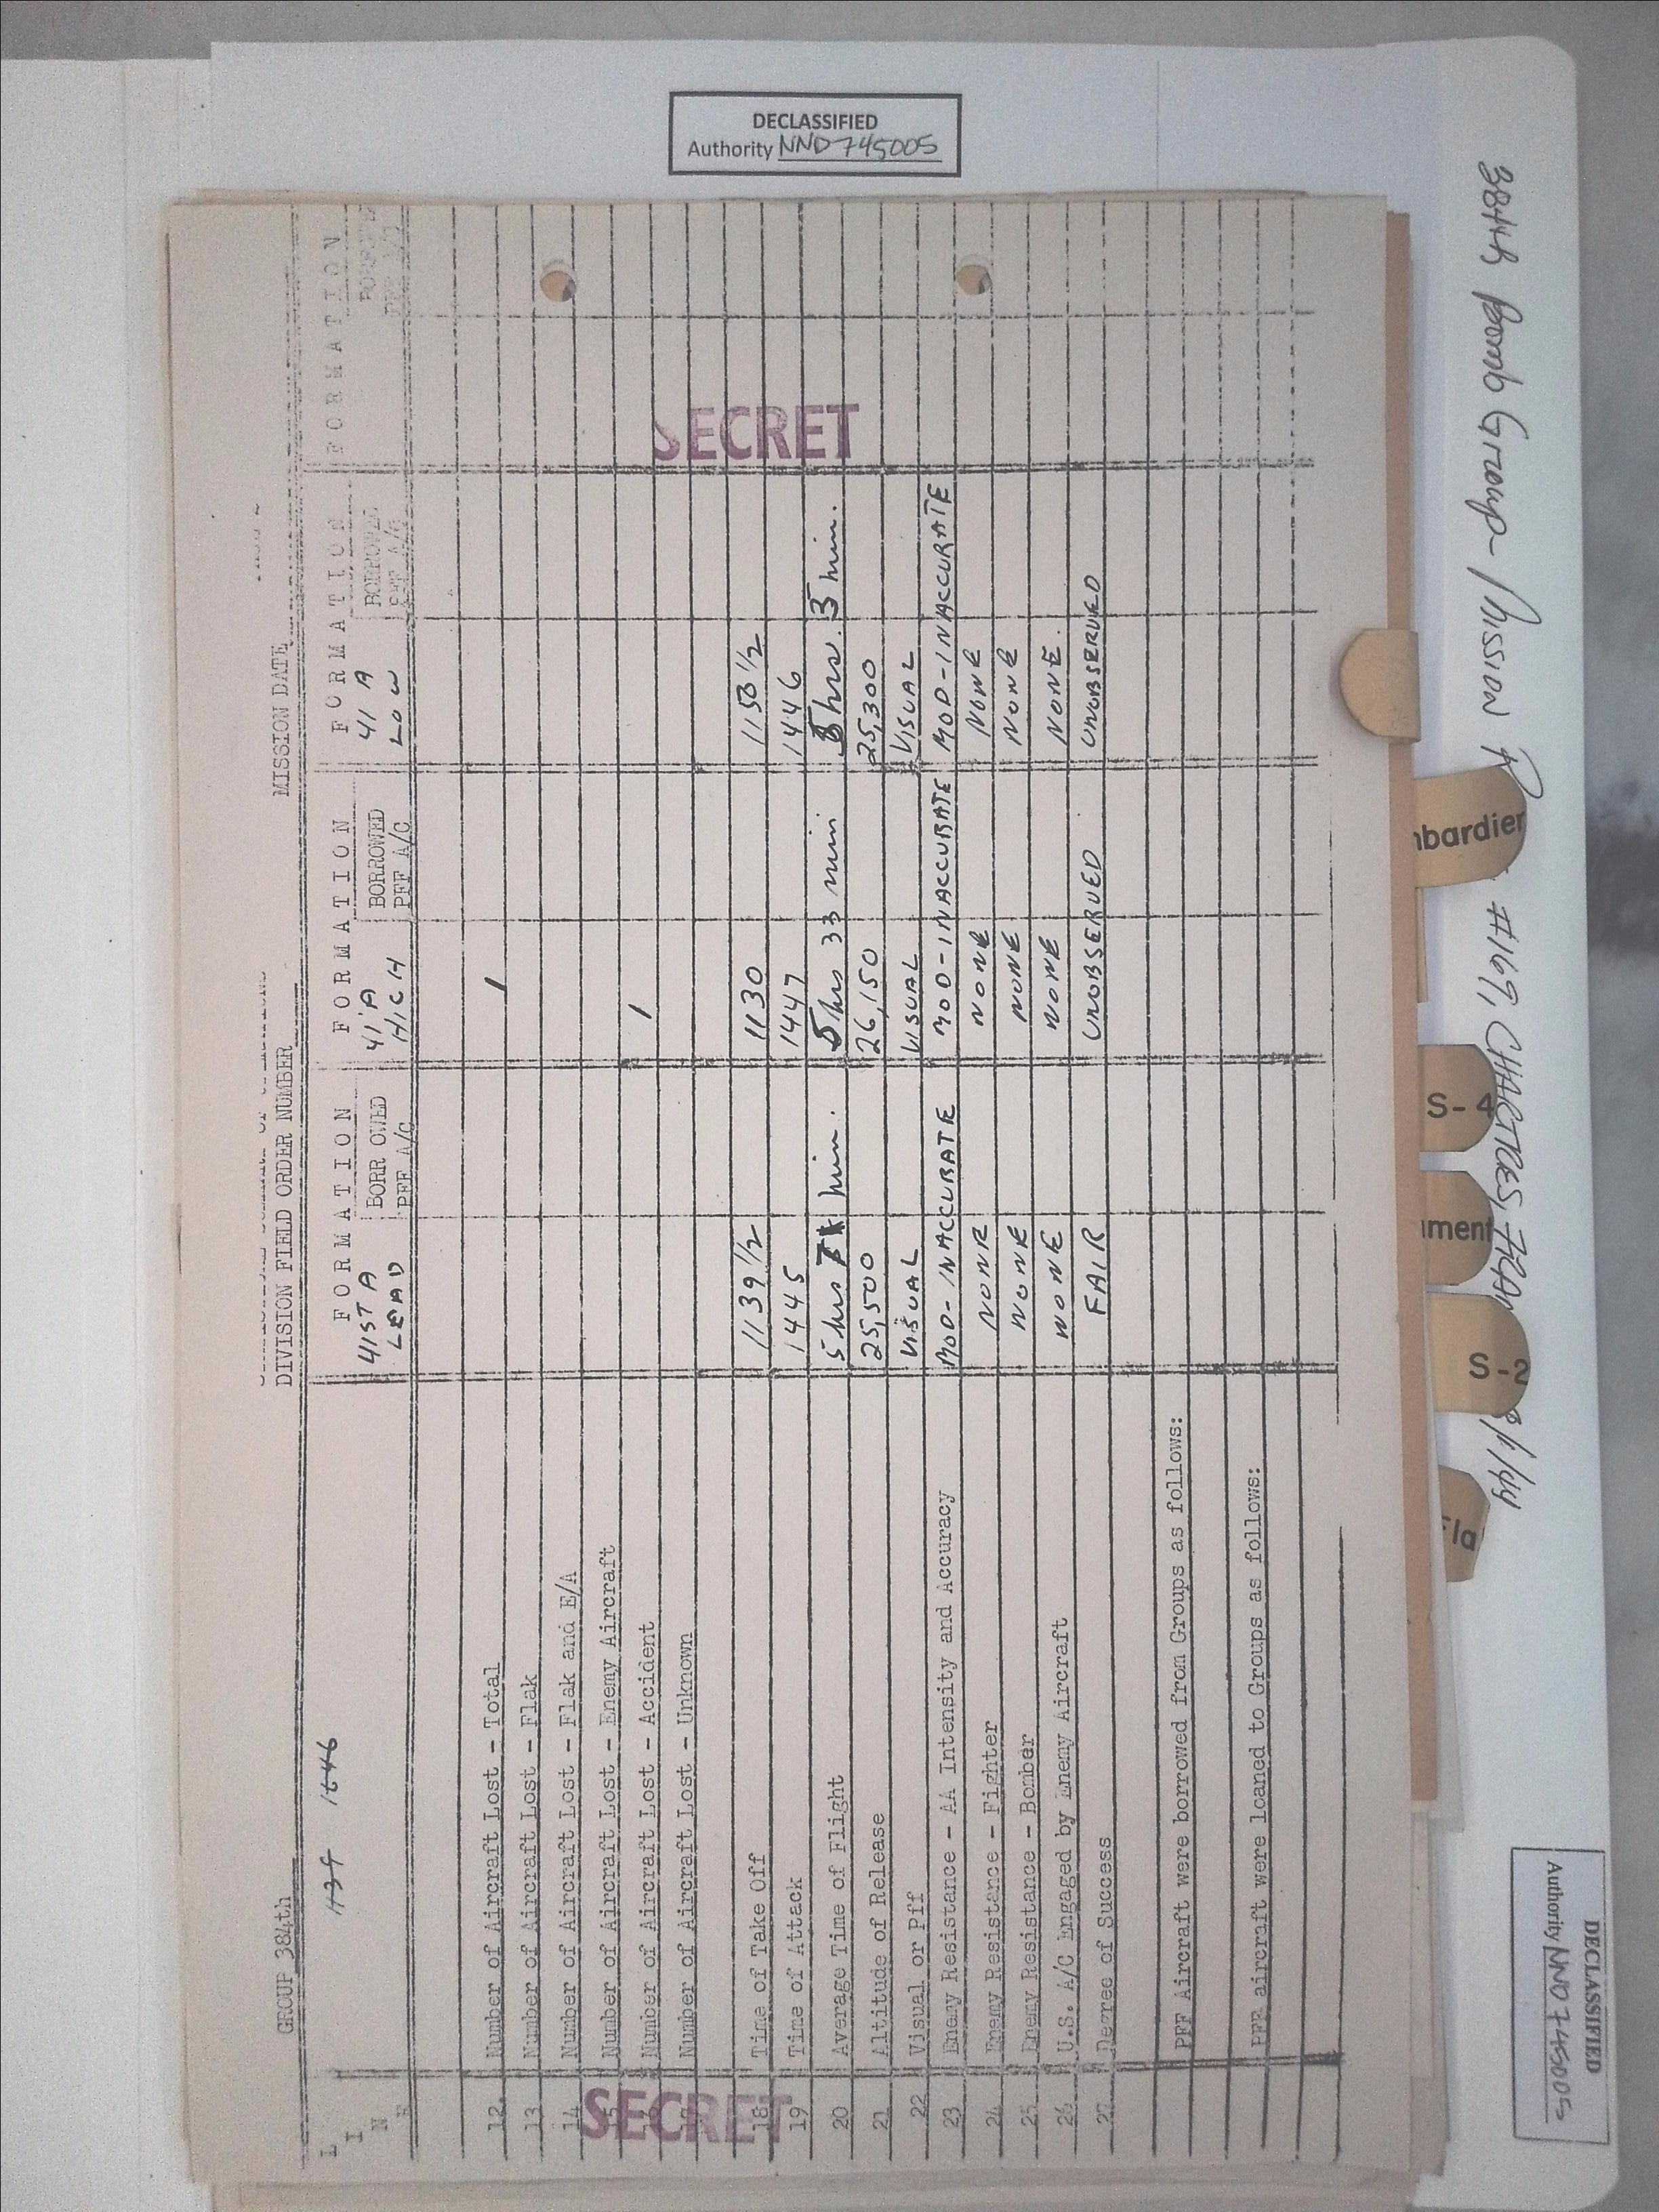 DECLASSIFIED
Authority NND 745005
384th Bomb Group - Mission # 169, CHARTRES, FRAN
GROUP 384th
DIVISION FIELD ORDER NUMBER
MISSION DATE
1646
L I N E
FORMATION FORMATION FORMATION FORMATION
41ST A LEAD BORR OWED PFF A/C 41 A HIGH BORROWED PFF A/C 41 A LOW BORROWED PFF A/C
12. Number of Aircraft Lost - Total 1
13 Number of Aircraft Lost - Flak
14 Number of Aircraft Lost - Flak and E/A
Number of Aircraft Lost - Enemy Aircraft
Number of Aircraft Lost - Accident 1
Number of Aircraft Lost - Unknown
18 Time of Take Off 1139 1/2 1130
19 Time of Attack 1445 1447 1446
20 Average Time of Flight 5 hrs min. 5 hrs 33 min hrs. min.
21 Altitude of Release 25,500 26,150 25,300
22 Visual or Pff VISUAL VISUAL VISUAL
23 Enemy Resistance - AA Intensity and Accuracy MOD-INACCURATE MOD-INACCURATE MOD-INACCURATE
24 Enemy Resistance - Fighter NONE NONE NONE
25 Enemy Resistance - Bomber NONE NONE NONE
26 U.S. A/C Engaged by Enemy Aircraft NONE NONE NONE.
27 Degree of Success FAIR UNOBSERVED UNOBSERVED
PFF Aircraft were borrowed from Groups as follows:
PFF aircraft were loaned to Groups as follows:
SECRET
SECRET
nbardier
S-4
ment
S-2
Fla
DECLASSIFIED
Authority NND 745005